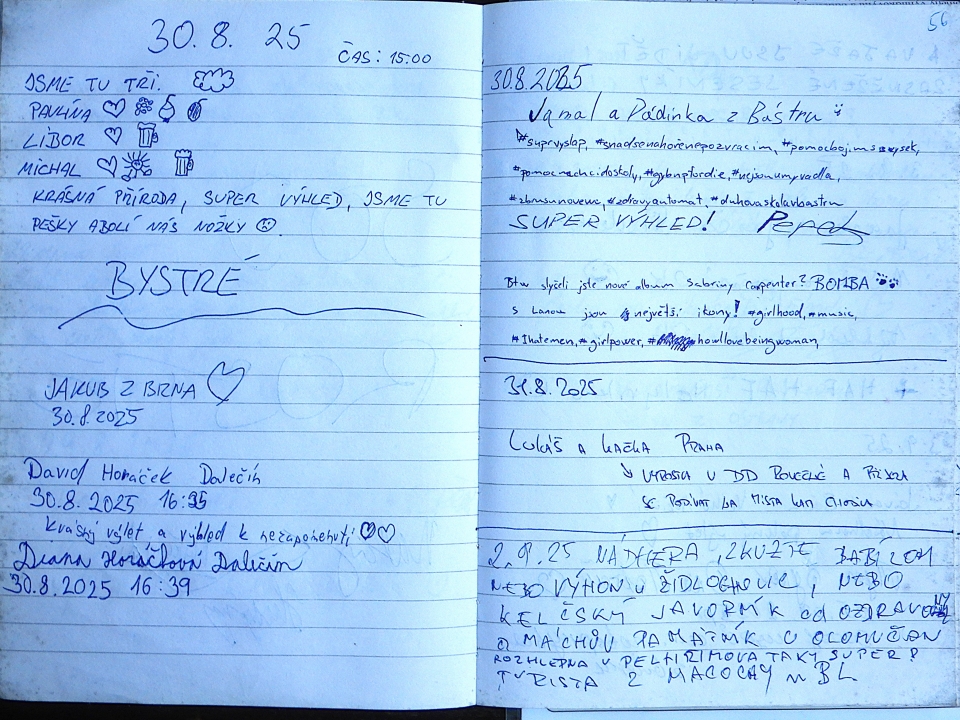 30. 8. 25
ČAS: 15:00
JSME TU TŘI.
PAVLÍNA
LÍBOR
MICHAL
KRÁSNÁ PŘÍRODA, SUPER VÝHLED, JSME TU
PEŠKY ABOLÍ NÁS NOŽKY
BYSTRÉ
JAKUB Z BRNA
30.8.2025
David Horáček Dalečín
30.8.2025 16:35
Krásný výlet a výhled k nezapomenutí
Diana Horáčková Dalečín
30.8.2025 16:39
56
30.8.2025
Jamal a Páďinka z Bástru
#suprvyslap, #snadsenahořenepozvracim, #pomocbojims
#pomocnechcidoskoly, #gybnpfordie, #nejsonumyvadla,
#zbrnsunovewc, #zdravyautomat, #duhovaskolavbastru
SUPER VÝHLED!
Btw slyšeli jste nové album Sabriny carpenter? BOMBA
s Lanou jsou největší ikony! #girlhood, #music,
#Ihatemen, #girlpower, #howIlovebeingwoman,
31.8.2025
Lukáš a Kačka Praha
VYROSTLA V DD A PŘIJELA
SE PODÍVAT NA MÍSTA KAM CHODILA
2.9.25 NÁDHERA, ZKUZTE BABÍ LOM
NEBO VÝHON U ŽIDLOCHOVIC, NEBO
KELČSKÝ JAVORNÍK od OZDRAVOVNY
a MÁCHŮV PAMÁTNÍK U OLOMUČAN
ROZHLEDNA U PELHŘIMOVA TAKY SUPER!
TURISTA Z MACOCHY n BL